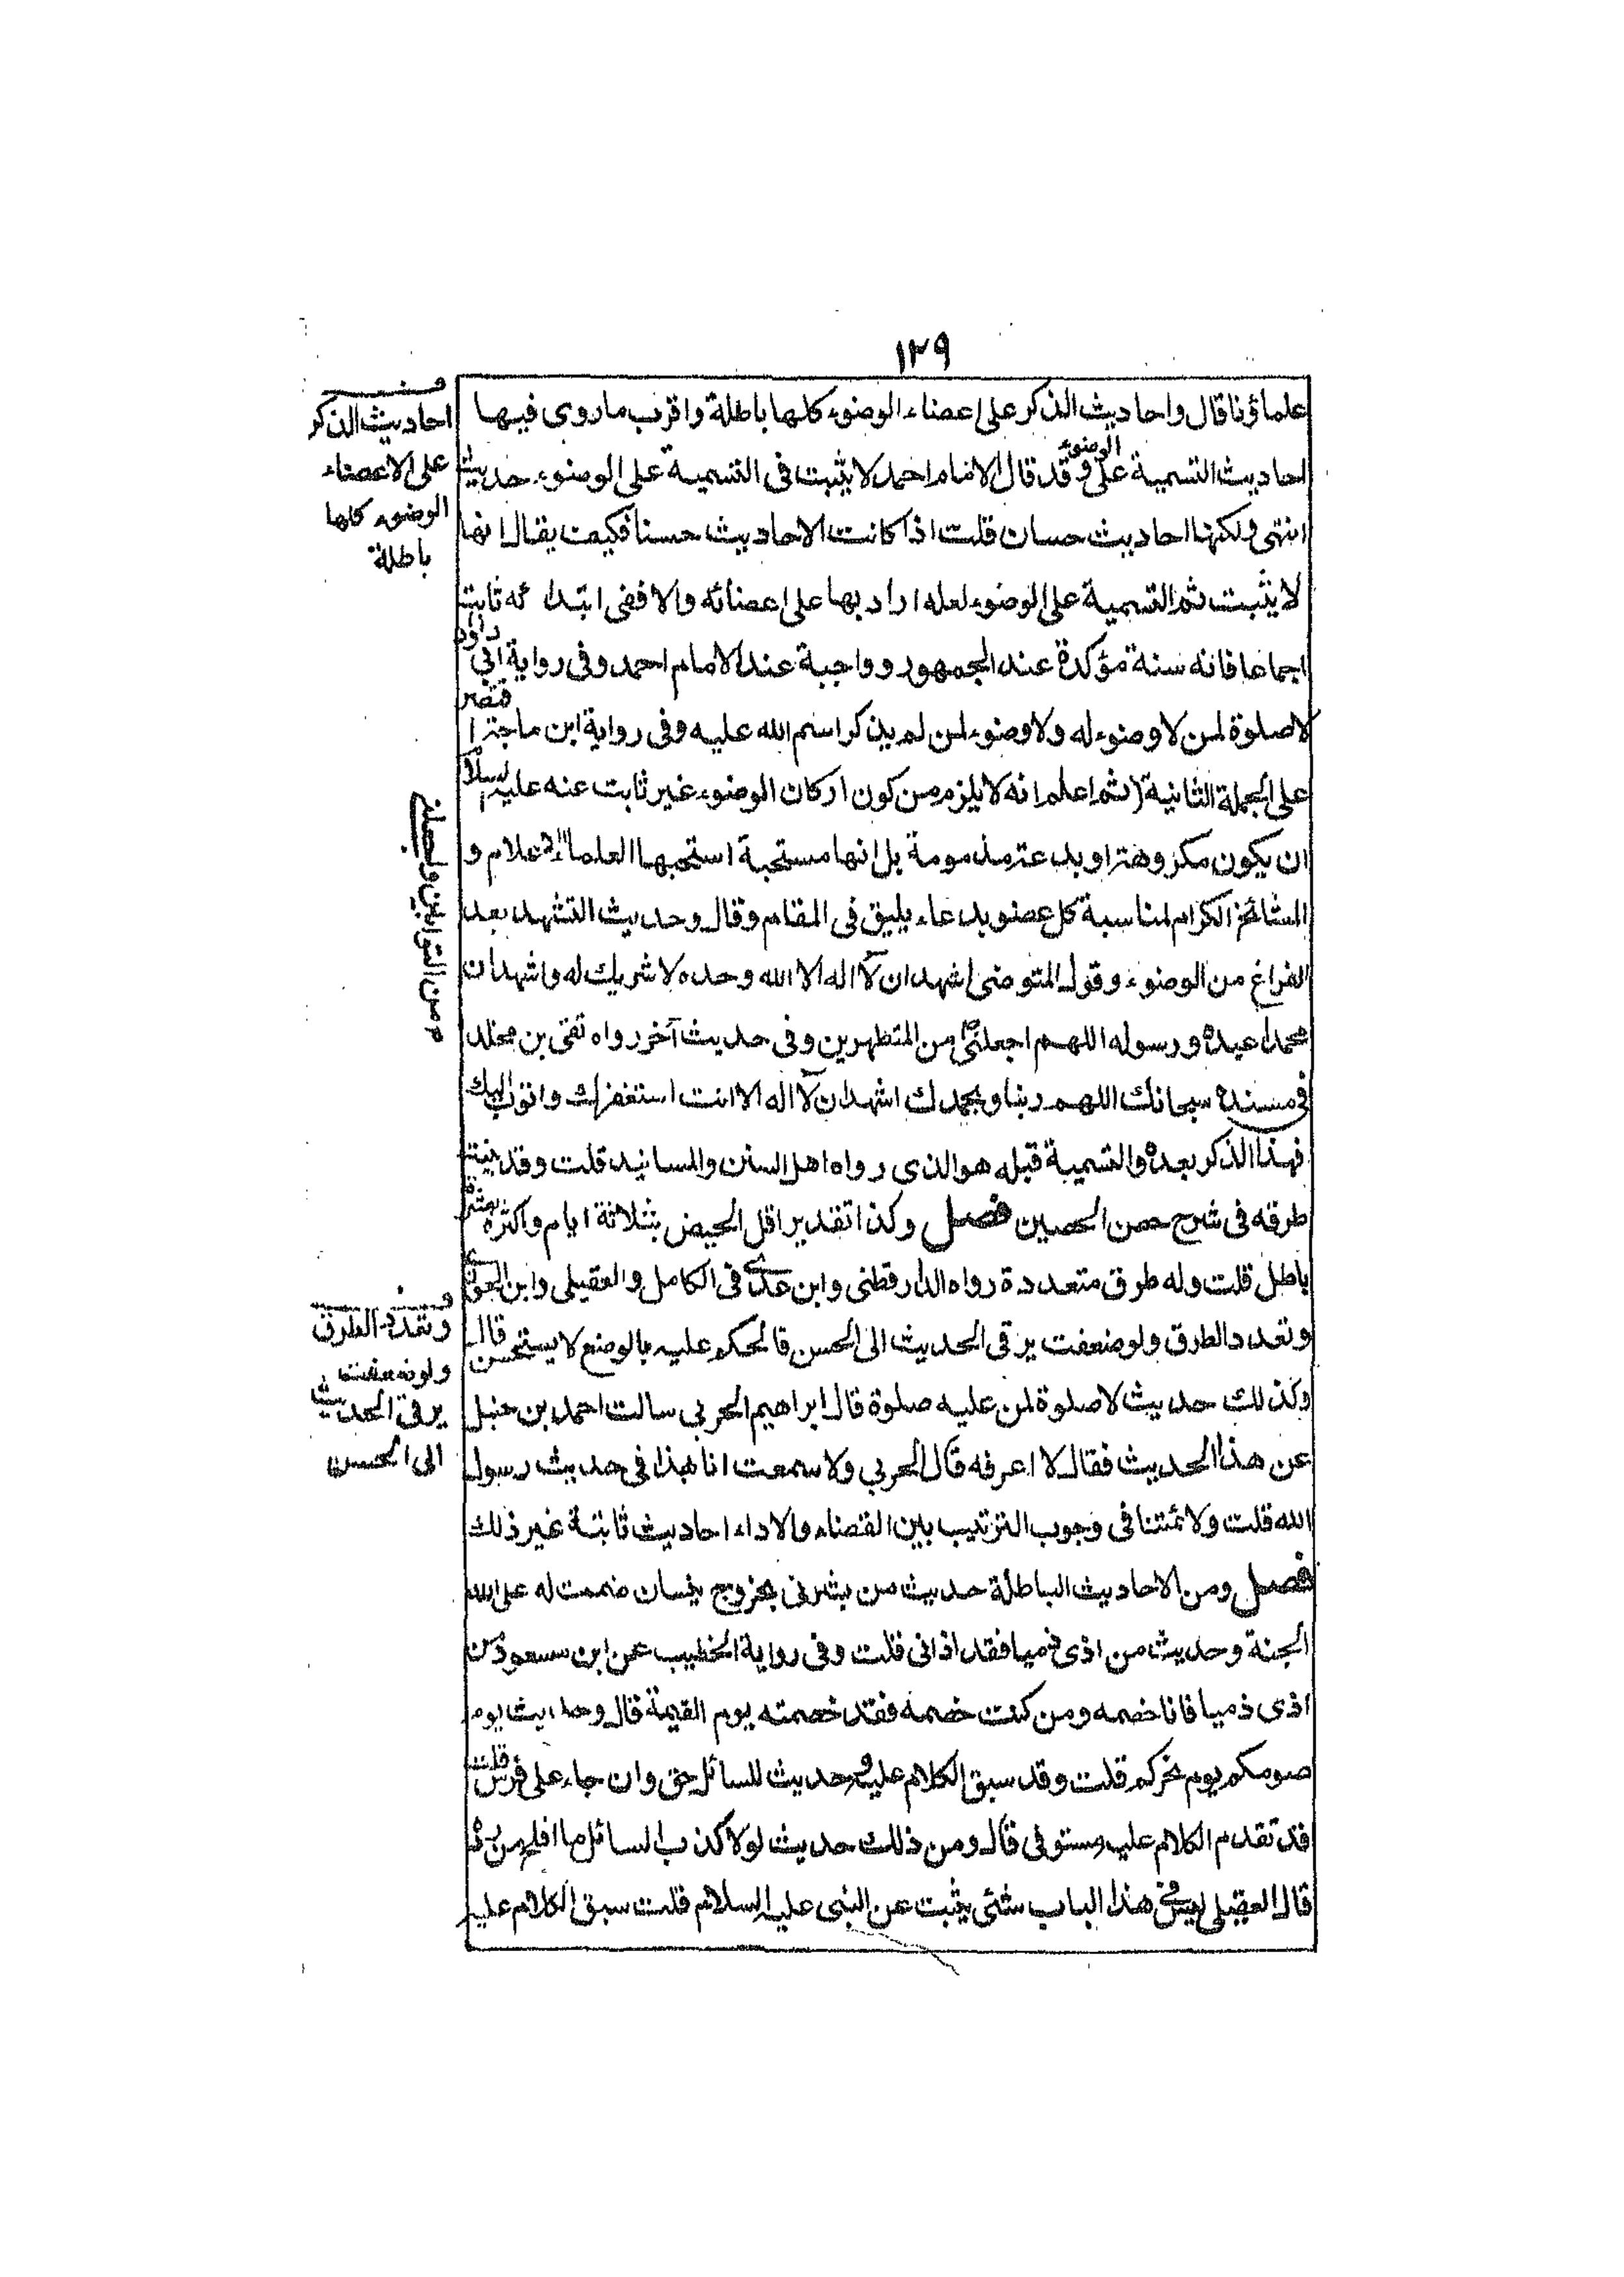 ١٢٩
علماؤنا قال واحاديث الذكر على اعضاء الوضوء كلها باطلة واقرب ما روى فيها
احاديث التسمية على الوضوء وقد قال الامام احمد لا يثبت فى التسمية على الوضوء حديث
انتهى ولكنها احاديث حسان قلت اذا كانت الاحاديث حسنا فكيف يقال انها
لا يثبت ثم التسمية على الوضوء لعله اراد بها على اعضائه والا ففى ابتدائه ثابت
اجماعا فانه سنة مؤكدة عند الجمهور وواجبة عند الامام احمد وفى رواية ابى داؤد
لا صلوة لمن لا وضوء له ولا وضوء لمن لم يذكر اسم الله عليه وفى رواية ابن ماجة اقتصر
على الجملة الثانية (ثم اعلم انه لا يلزم من كون اركان الوضوء غير ثابت عنه عليه السلام
ان يكون مكروهة او بدعة مذمومة بل انها مستحبة استحبها العلماء الاعلام و
المشائخ الكرام لمناسبة كل عضو بدعاء يليق فى المقام وقال وحديث التشهد بعد
الفراغ من الوضوء وقول المتوضى اشهد ان لا اله الا الله وحده لا شريك له واشهد ان
محمدا عبده ورسوله اللهم اجعلنى من المتطهرين وفى حديث آخر رواه تقى بن مخلد
فى مسنده سبحانك اللهم ربنا وبحمدك اشهد ان لا اله الا انت استغفرك واتوب اليك
فهذا الذكر بعده والتسمية قبله هو الذى رواه اهل السنن والمسانيد قلت وقد بينت
طرقه فى شرح حصن الحصين فصل وكذا تقدير اقل الحيض بثلاثة ايام واكثره بعشرة
باطل قلت وله طرق متعددة رواه الدارقطنى وابن عدى فى الكامل والعقيلى وابن الجوزى
وتعدد الطرق ولو ضعفت يرقى الحديث الى الحسن فالحكم عليه بالوضع لا يستحسن قال
وكذلك حديث لا صلوة لمن عليه صلوة قال ابراهيم الحربى سالت احمد بن حنبل
عن هذا الحديث فقال لا اعرفه قال الحربى ولا سمعت انا بهذا فى حديث رسول
الله قلت ولائمتنا فى وجوب الترتيب بين القضاء والاداء احاديث ثابتة غير ذلك
فصل ومن الاحاديث الباطلة حديث من بشرنى بخروج نيسان ضمنت له على الله
الجنة وحديث من اذى ذميا فقد اذانى قلت وفى رواية الخطيب عن ابن مسعود من
اذى ذميا فانا خصمه ومن كنت خصمه فقد خصمته يوم القيمة قال وحديث يوم
صومكم يوم نحركم قلت وقد سبق الكلام عليه وحديث للسائل حق وان جاء على فرس قلت
قد تقدم الكلام عليه مستوفى قال ومن ذلك حديث لولا كذب السائل ما افلح من رده
قال العقيلى ليس فى هذا الباب شئ يثبت عن النبى عليه السلام قلت سبق الكلام عليه
احاديث الذكر
على الاعضاء
الوضوء كلها
باطلة
من التوابين واجعلنى
وتعدد الطرق
ولو ضعفت
يرقى الحديث
الى الحسن